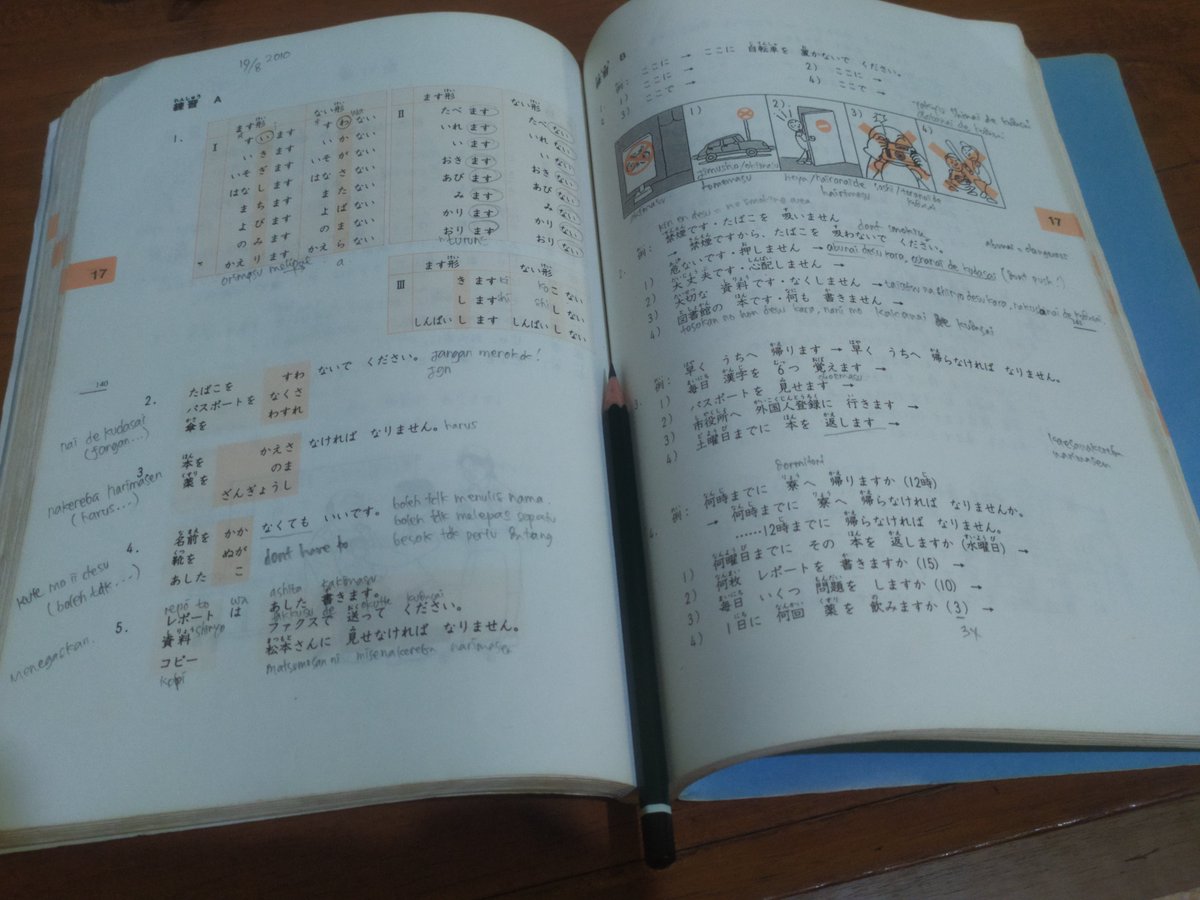 19/8 2010
練習 A
1.
ます形 ない形
I
すい ます すわ ない
いき ます いか ない
いそぎ ます いそが ない
はなし ます はなさ ない
まち ます また ない
よび ます よば ない
のみ ます のま ない
かえり ます かえら ない
a
II
ます形 ない形
たべ ます たべ ない
いれ ます いれ ない
い ます い ない
おき ます おき ない
あび ます あび ない
み ます み ない
かり ます かり ない
おり ます おり ない
turun
III
ます形 ない形
き ます ki ko こ ない
し ます shi shi し ない
しんぱい し ます しんぱい し ない
17
140
2. たばこを すわ ないで ください。 jangan merokok!
パスポートを なくさ jgn
傘を わすれ
nai de kudasai
(jangan...)
3. 本を かえさ なければ なりません。 harus
薬を のま
ざんぎょうし
nakereba narimasen
(harus...)
4. 名前を かか なくても いいです。 boleh tdk menulis nama
靴を ぬが dont have to boleh tdk melepas sepatu
あした こ besok tdk perlu datang
kute mo ii desu
(boleh tdk...)
5. レポート は あした 書きます。
資料 ファクスで 送って ください。
コピー 松本さんに 見せなければ なりません。
kopi matsumosan ni misenakereba narimasen
menegaskan.
練習 B
1. 例: ここに → ここに 自転車を 置かないで ください。
1) ここに → 2) ここに →
3) ここで → 4) ここで →
1) 2) 3) 4)
17
kin en desu = no smoking area
2. 例: 禁煙です・たばこを 吸いません dont smoking
→ 禁煙ですから、たばこを 吸わないで ください。 abunai = dangerous
1) 危ないです・押しません → abunai desu kara, osanai de kudasai (Dont push!)
2) 大丈夫です・心配しません →
3) 大切な 資料です・なくしません → taisetsu na shiryo desu kara, nakusanai de kudasai
4) 図書館の 本です・何も 書きません →
tosokan no hon desu kara, nani mo kakanai de kudasai
3. 例: 早く うちへ 帰ります → 早く うちへ 帰らなければ なりません。
1) 毎日 漢字を 6つ 覚えます →
2) パスポートを 見せます →
3) 市役所へ 外国人登録に 行きます →
4) 土曜日までに 本を 返します →
kaesanakereba
narimasen
dormitori
4. 例: 何時までに 寮へ 帰りますか (12時)
→ 何時までに 寮へ 帰らなければ なりませんか。
……12時までに 帰らなければ なりません。
1) 何曜日までに その 本を 返しますか (水曜日) →
2) 何枚 レポートを 書きますか (15) →
3) 毎日 いくつ 問題を しますか (10) →
4) 1日に 何回 薬を 飲みますか (3) →
3x